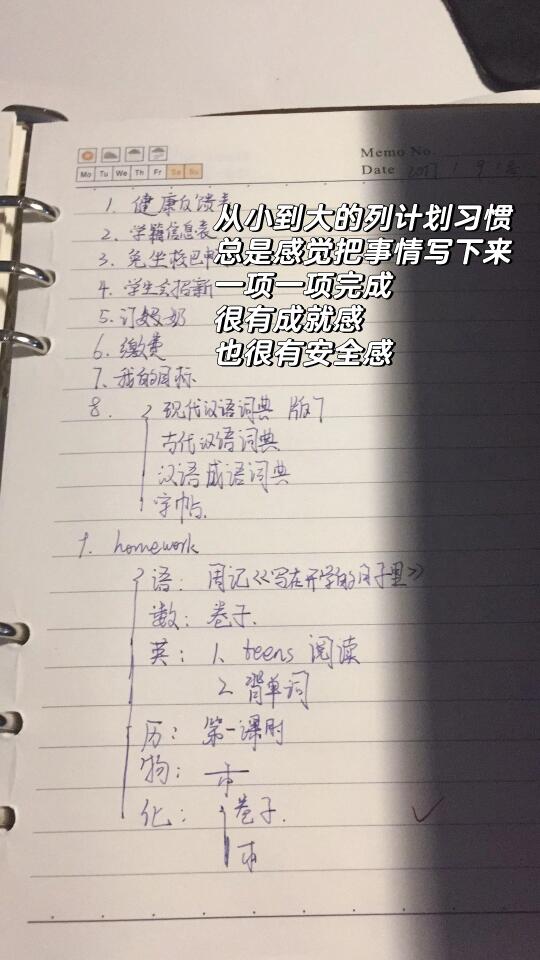 Memo No.
Mo Tu We Th Fr Sa Su
Date 2017 / 9 /
1. 健康反馈表
从小到大的列计划习惯
2. 学籍信息表
总是感觉把事情写下来
3. 免坐校巴申
4. 学生会招新
一项一项完成
5. 订奶
很有成就感
6. 缴费
也很有安全感
7. 我的目标
8. 现代汉语词典 版7
古代汉语词典
汉语成语词典
字帖
9. homework
语: 周记《写在开学的日子里》
数: 卷子.
英: 1. teens 阅读
2. 背单词
历: 第一课时
物:
化: 卷子.